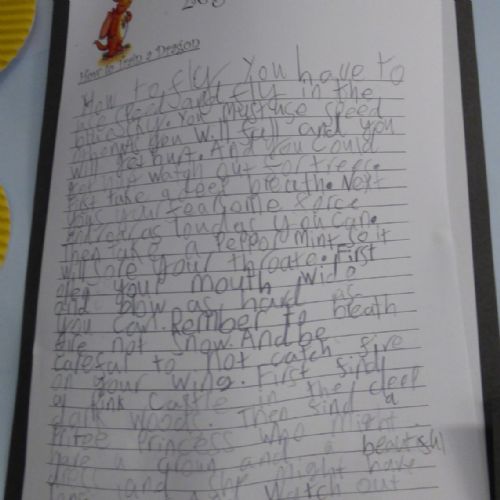 How to Train a Dragon
How to fly You have to
use speed and fly in the
blue sky. You must use speed
otherwise you will fall and you
will get hurt. And you could
get watch out for trees.
First take a deep breath. Next
use your fearsome force
and roar as loud as you can.
Then take a Peppor mint so it
will sore your throate. First
open your mouth wide
and blow as hard as
you can. Remember to breath
fire not snow. And be
careful to not catch fire
on your wing. First find
a pink Castle in the deep
dark woods. Then find a
Princess who might
have a crown and a beautiful
dress and she might have
watch out